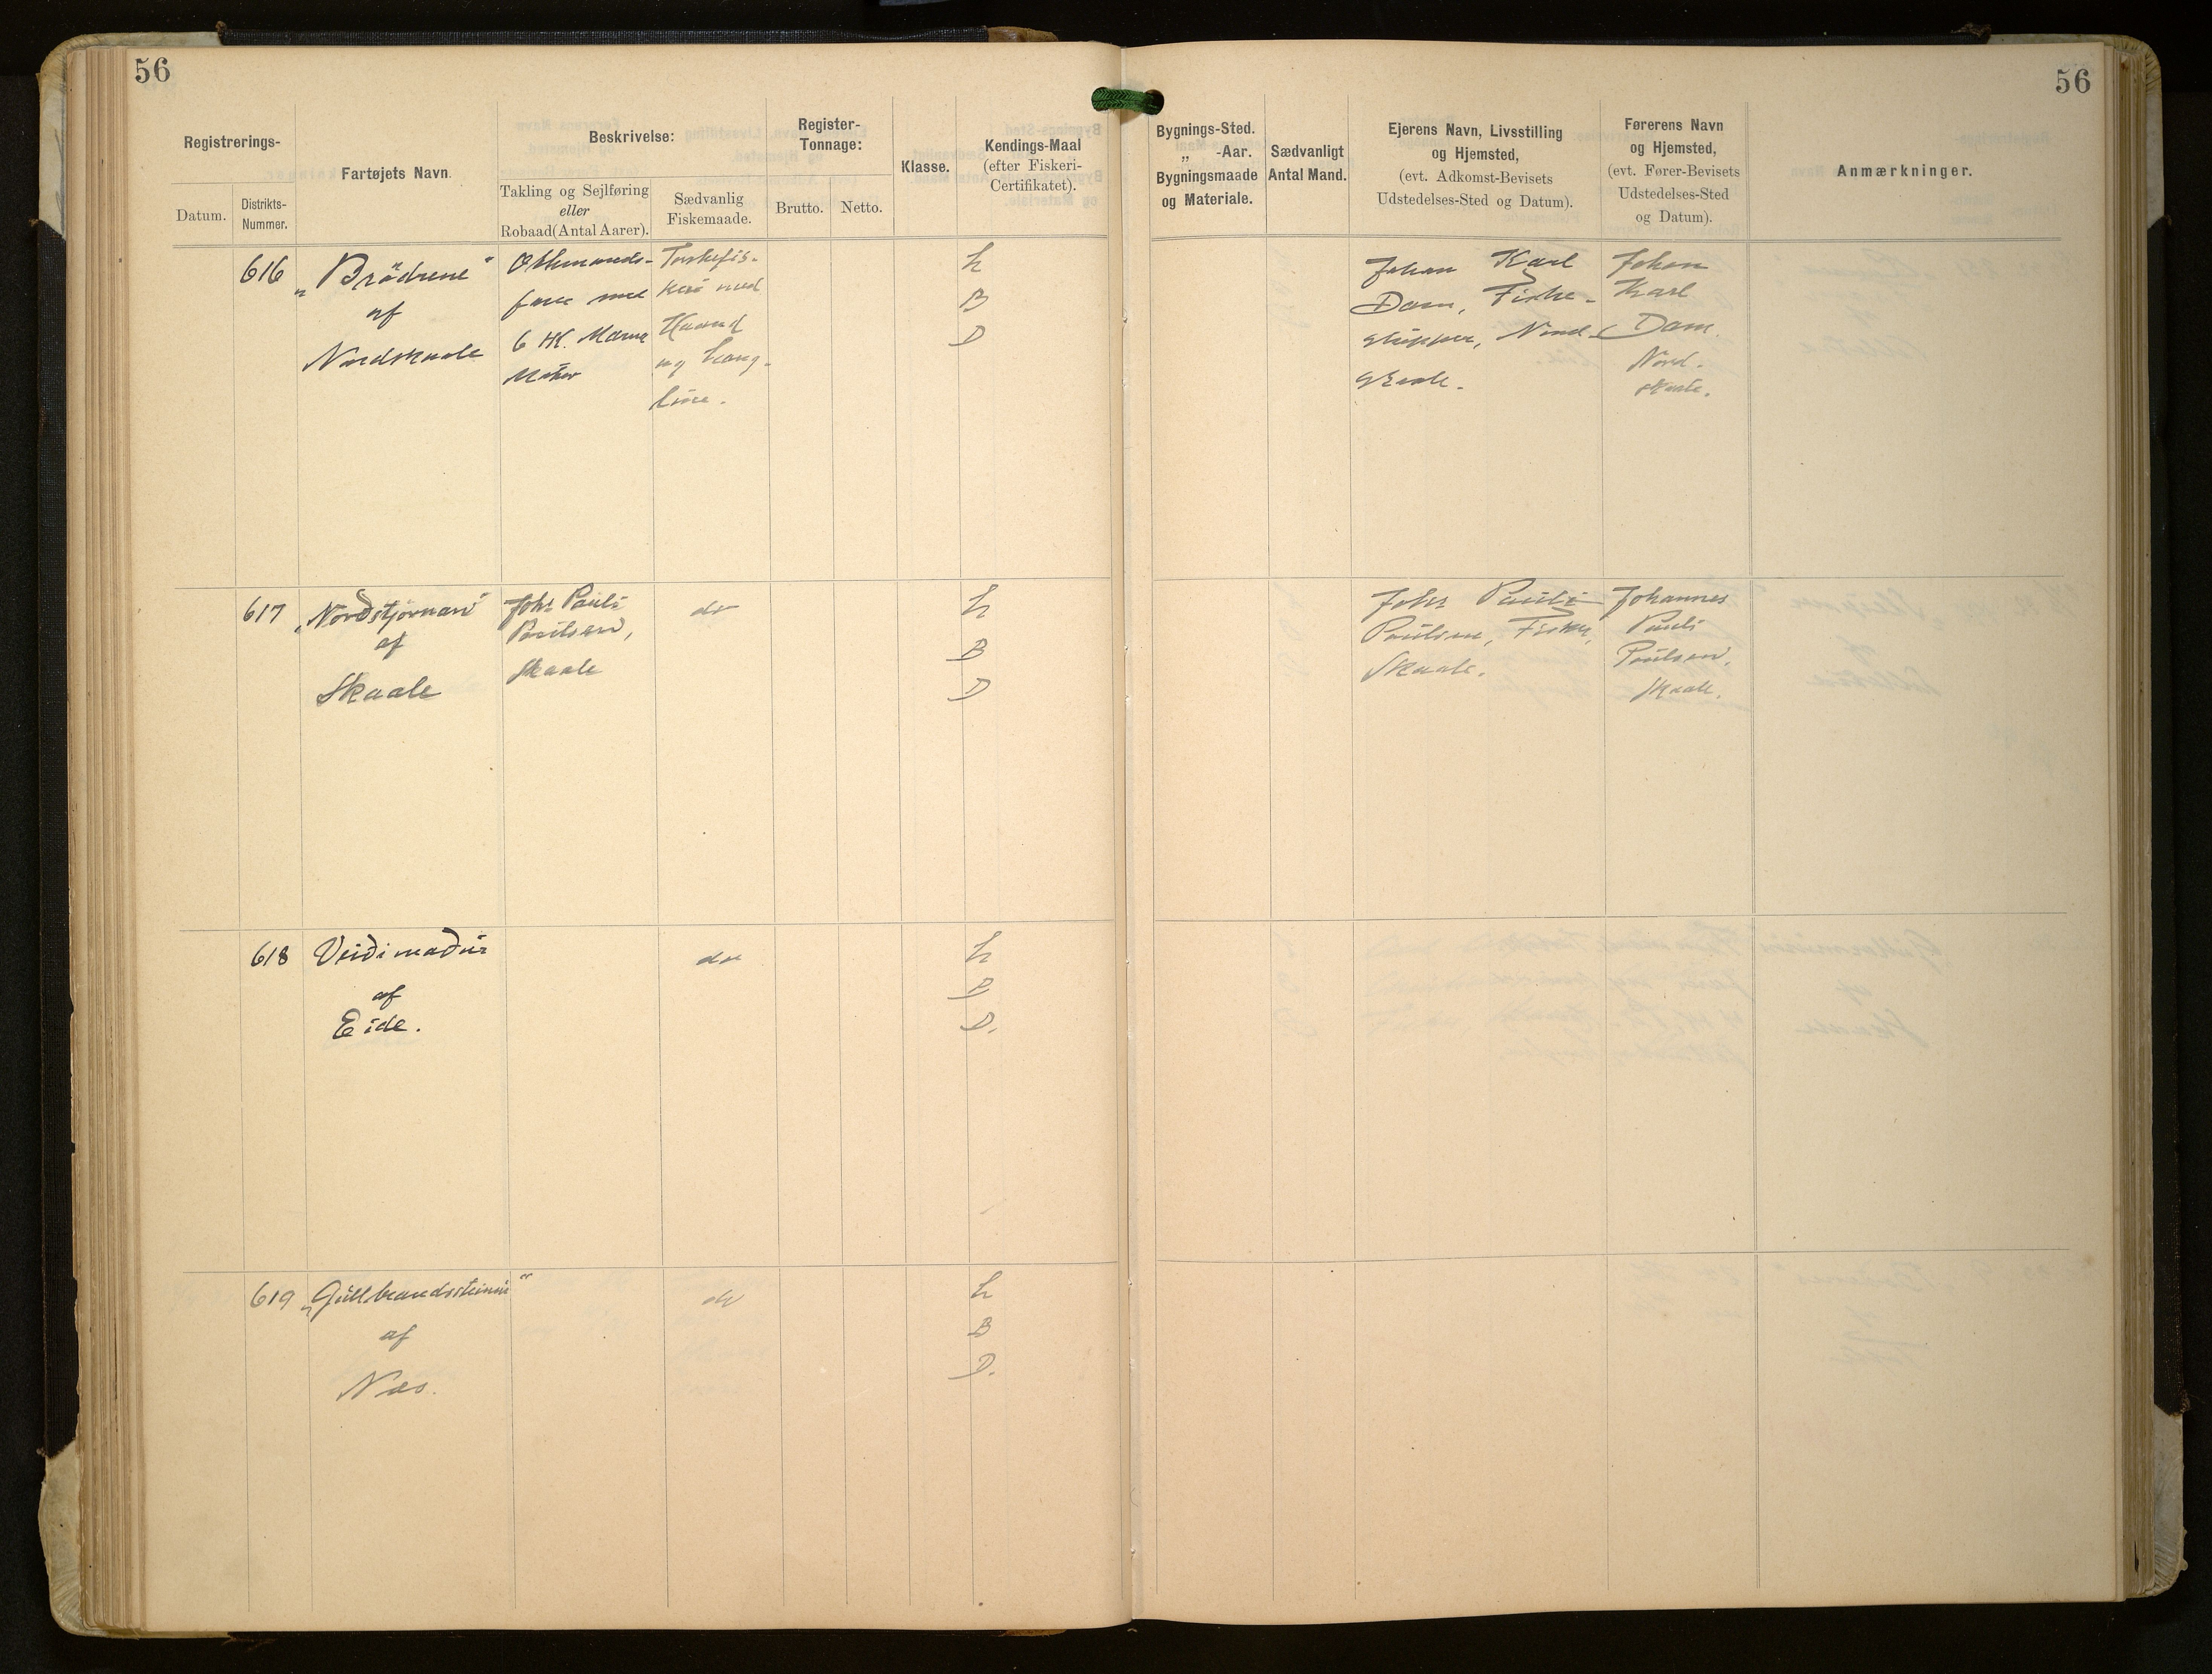 56
56
Registrerings-
Datum.
Distrikts-
Nummer.
Fartøjets Navn.
Beskrivelse:
Takling og Sejlføring
eller
Robaad (Antal Aarer).
Sædvanlig
Fiskemaade.
Register-
Tonnage:
Brutto.
Netto.
Klasse.
Kendings-Maal
(efter Fiskeri-
Certifikatet).
Bygnings-Sted.
„ -Aar.
Bygningsmaade
og Materiale.
Sædvanligt
Antal Mand.
Ejerens Navn, Livsstilling
og Hjemsted,
(evt. Adkomst-Bevisets
Udstedelses-Sted og Datum).
Førerens Navn
og Hjemsted,
(evt. Fører-Bevisets
Udstedelses-Sted
og Datum).
Anmærkninger.
616
„Brödrene"
af
Nordskaale
6 HK.
Motor
Torskefis-
keri med
Haand
og Lang-
line.
L
B
D
Johan Karl
Dam, Fiske-
skipper, Nord-
skaale.
Johan
Karl
Dam.
Nord-
skaale.
617
„Norðstjörnan"
af
Skaale
Johs Pauli
Poulsen,
Skaale
do
L
B
D
Johs Pauli
Poulsen, Fisker,
Skaale.
Johannes
Pauli
Poulsen,
Skaale.
618
Veiðimaður
af
Eide.
do
L
B
D.
619
„Gullbrandssteinur"
af
Næs.
do
L
B
D.